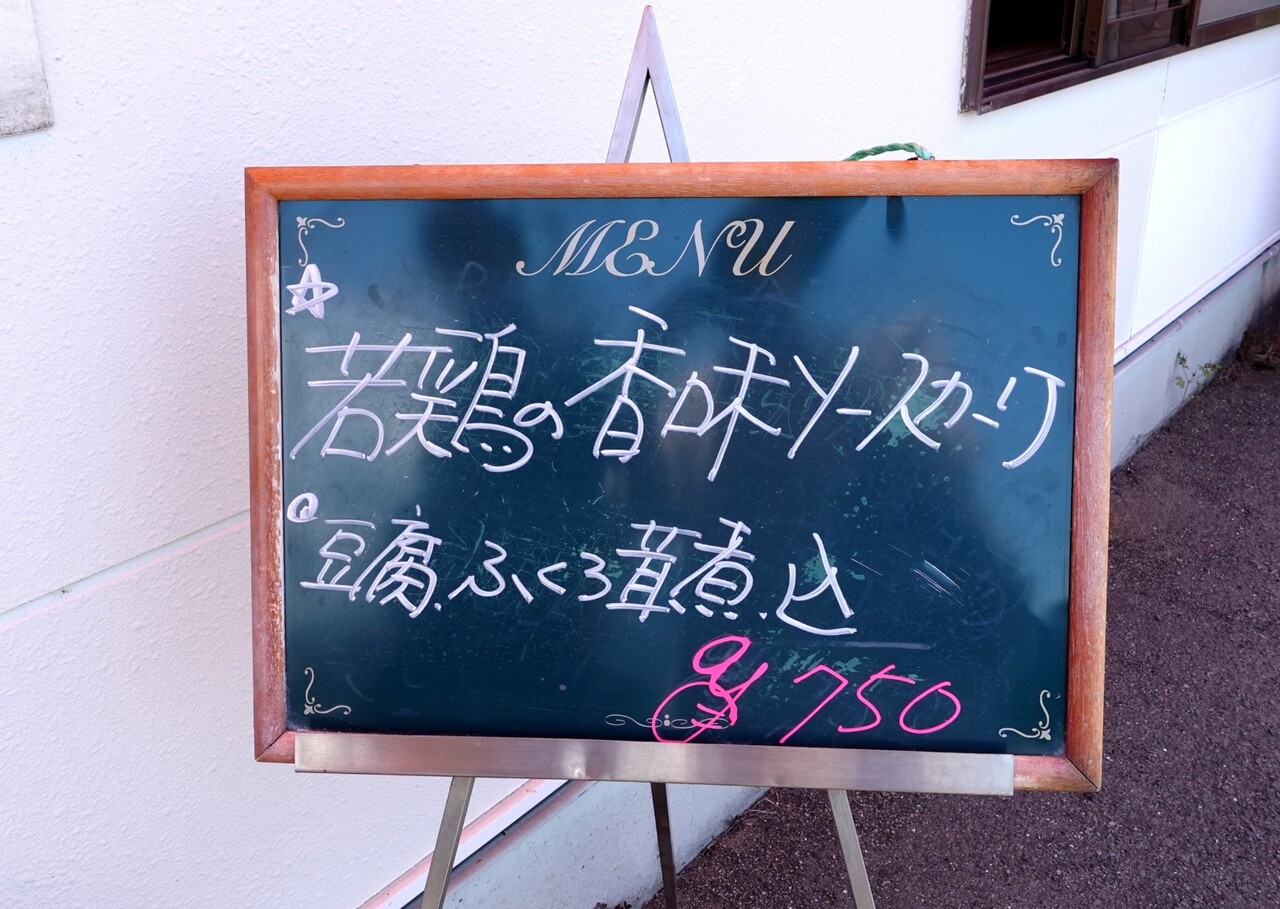 MENU
☆
若鶏の香味ソースかけ
豆腐ふくろ茸煮込
¥750